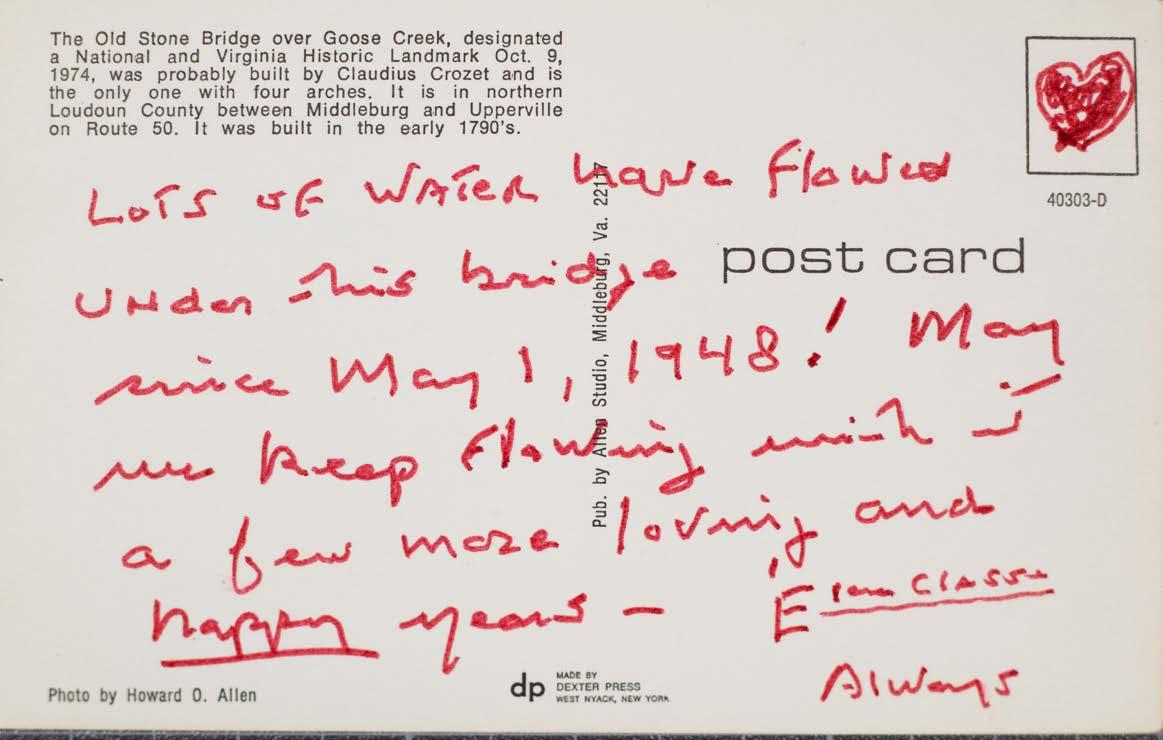 The Old Stone Bridge over Goose Creek, designated
a National and Virginia Historic Landmark Oct. 9,
1974, was probably built by Claudius Crozet and is
the only one with four arches. It is in northern
Loudoun County between Middleburg and Upperville
on Route 50. It was built in the early 1790's.
40303-D
post card
LOTS OF WATER have flowed
UNder this bridge
since May 1, 1948! May
we keep flowing with it
a few more loving and
happy years —
Always
Pub. by Allen Studio, Middleburg, Va. 22117
Photo by Howard O. Allen
dp
MADE BY
DEXTER PRESS
WEST NYACK, NEW YORK